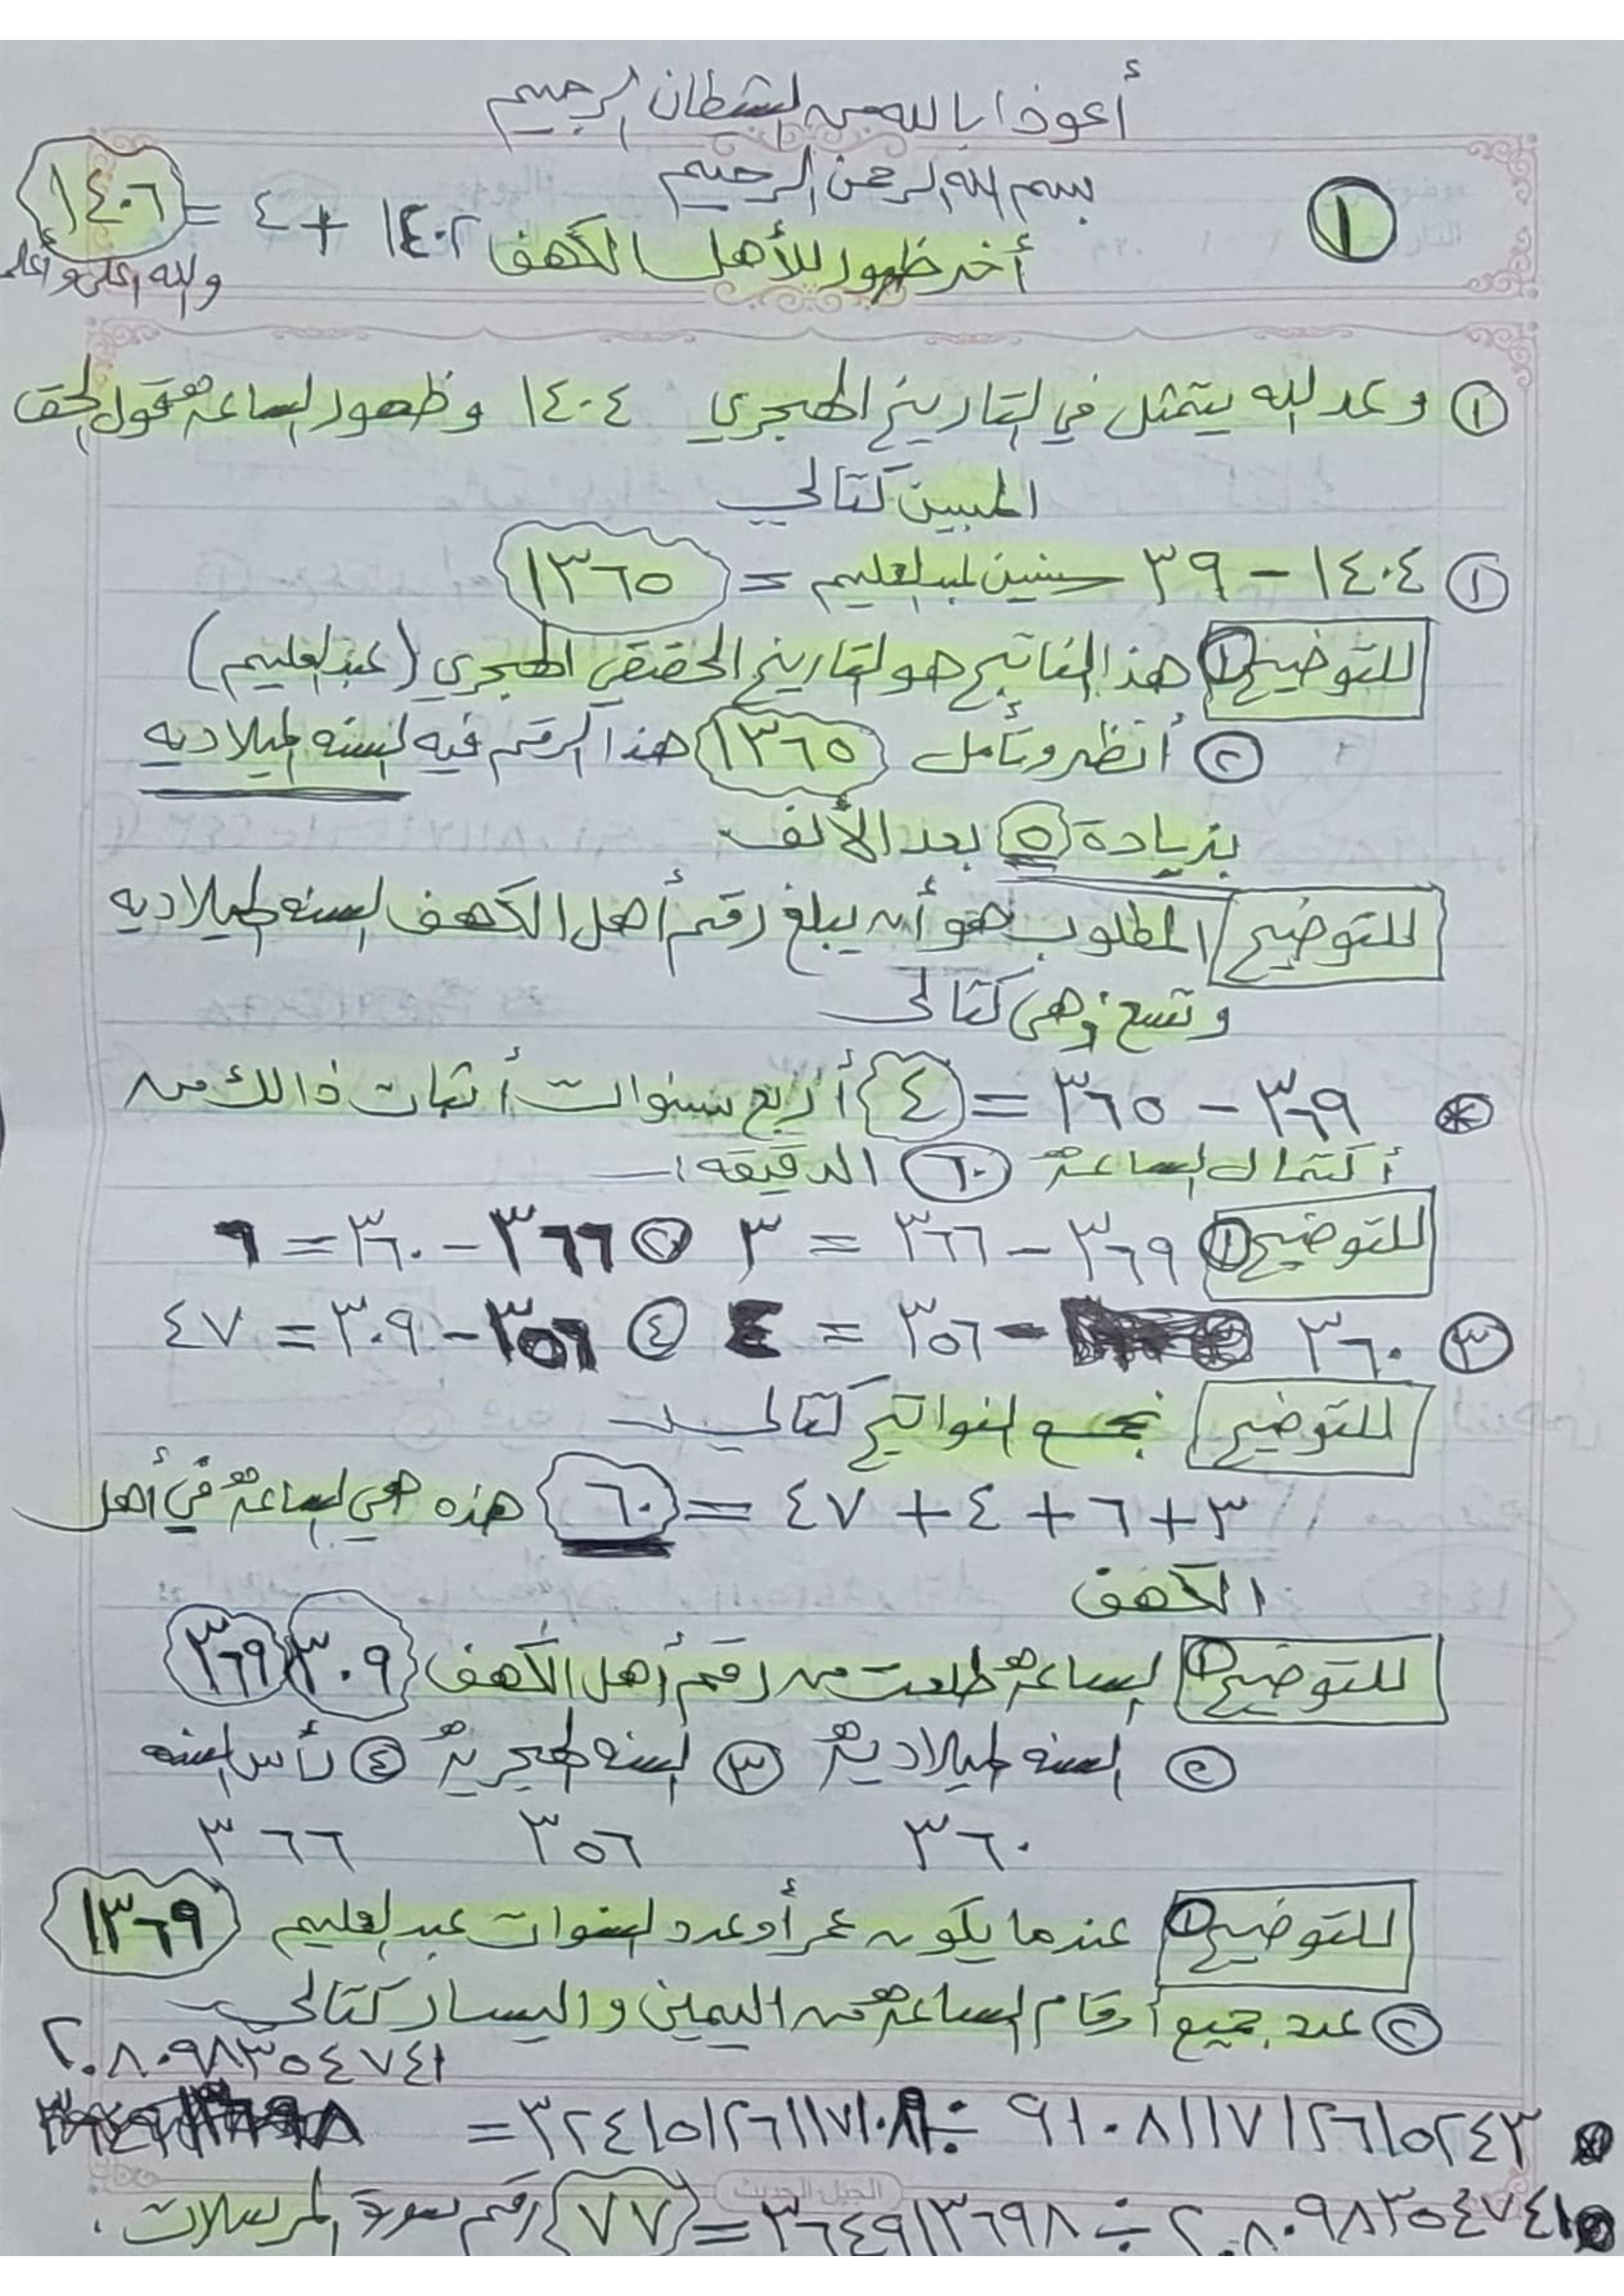 أعوذا بالله من الشطان الرجيم
بسم الله الرحمن الرحيم
١
أخر ظهور للأهل الكهف ١٤٠٢ + ٤ = ١٤٠٦
والله اعلى وأعلم
١ وعد لله يتمثل في التاريخ الهجري ١٤٠٤ وظهور الساعة قول الحق
المبين كتالي
١ ١٤٠٤ - ٣٩ سنين عبد العليم = ١٣٦٥
للتوضيح ١ هذ الناتج هو التاريخ الحقيقي الهجري (عبد العليم)
٢ أنظر وتأمل ١٣٦٥ هذا الرقم فيه السنه الميلاديه
بزيادة ٥ بعد الألف
للتوضيح المطلوب هو أن يبلغ رقم أهل الكهف السنه الميلاديه
وتسع وهي كتالي
* ٣٦٩ - ٣٦٥ = ٤ أربع سنوات أثبات ذالك من
أكتمال الساعة ٦٠ الدقيقه :ـ
للتوضيح ١ ٣٦٩ - ٣٦٦ = ٣ ٢ ٣٦٦ - ٣٦٠ = ٦
٣ ٣٦٠ - ٣٥٦ = ٤ ٤ ٣٥٦ - ٣٠٩ = ٤٧
للتوضيح نجمع النواتج كتالي
٣ + ٦ + ٤ + ٤٧ = ٦٠ هذه هي الساعة في أهل
الكهف
للتوضيح ١ الساعة طلعت من رقم أهل الكهف ٣٠٩ ٣٦٩
٢ السنه الميلادية ٣ السنه الهجرية ٤ رأس السنه
٣٦٠ ٣٥٦ ٣٦٦
للتوضيح ١ عندما يكون عمر أو عدد السنوات عبد العليم ١٣٦٩
٢ عدد جميع أرقام الساعة من اليمين واليسار كتالي
٢٠٨٠٩٨٣٥٤٧٤١
٩١٠٨١١٧١٢٦١٥٢٤٣ ÷ ٣٢٤١٥١٢٦١١٧١٠٨١٩ =
٢٠٨٠٩٨٣٥٤٧٤١ ÷ ٣٦٤٩١٣٦٩٨ = ٧٧ رقم سورة المرسلات .
الجيل الحديث